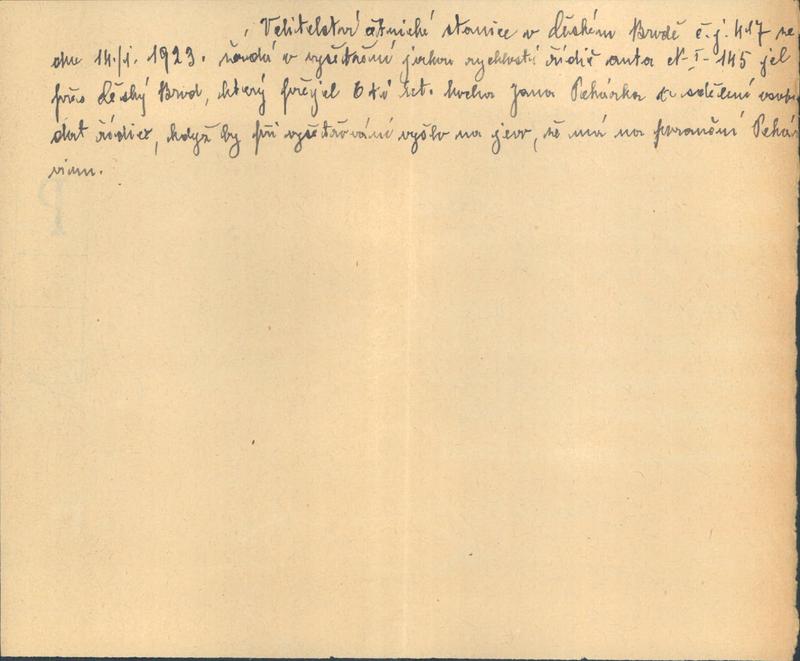 Velitelství četnické stanice v Českém Brodě č.j. 417 ze
dne 14./1. 1923. žádá v vyšetření jakou rychlostí řídič auta N-I-145 jel
přes Český Brod, který přejel 6 letého hocha Jana Pekárka a sdělení
dat řídiče, když by při vyšetřování vyšlo na jevo, že má na poranění Pekár
vinu.